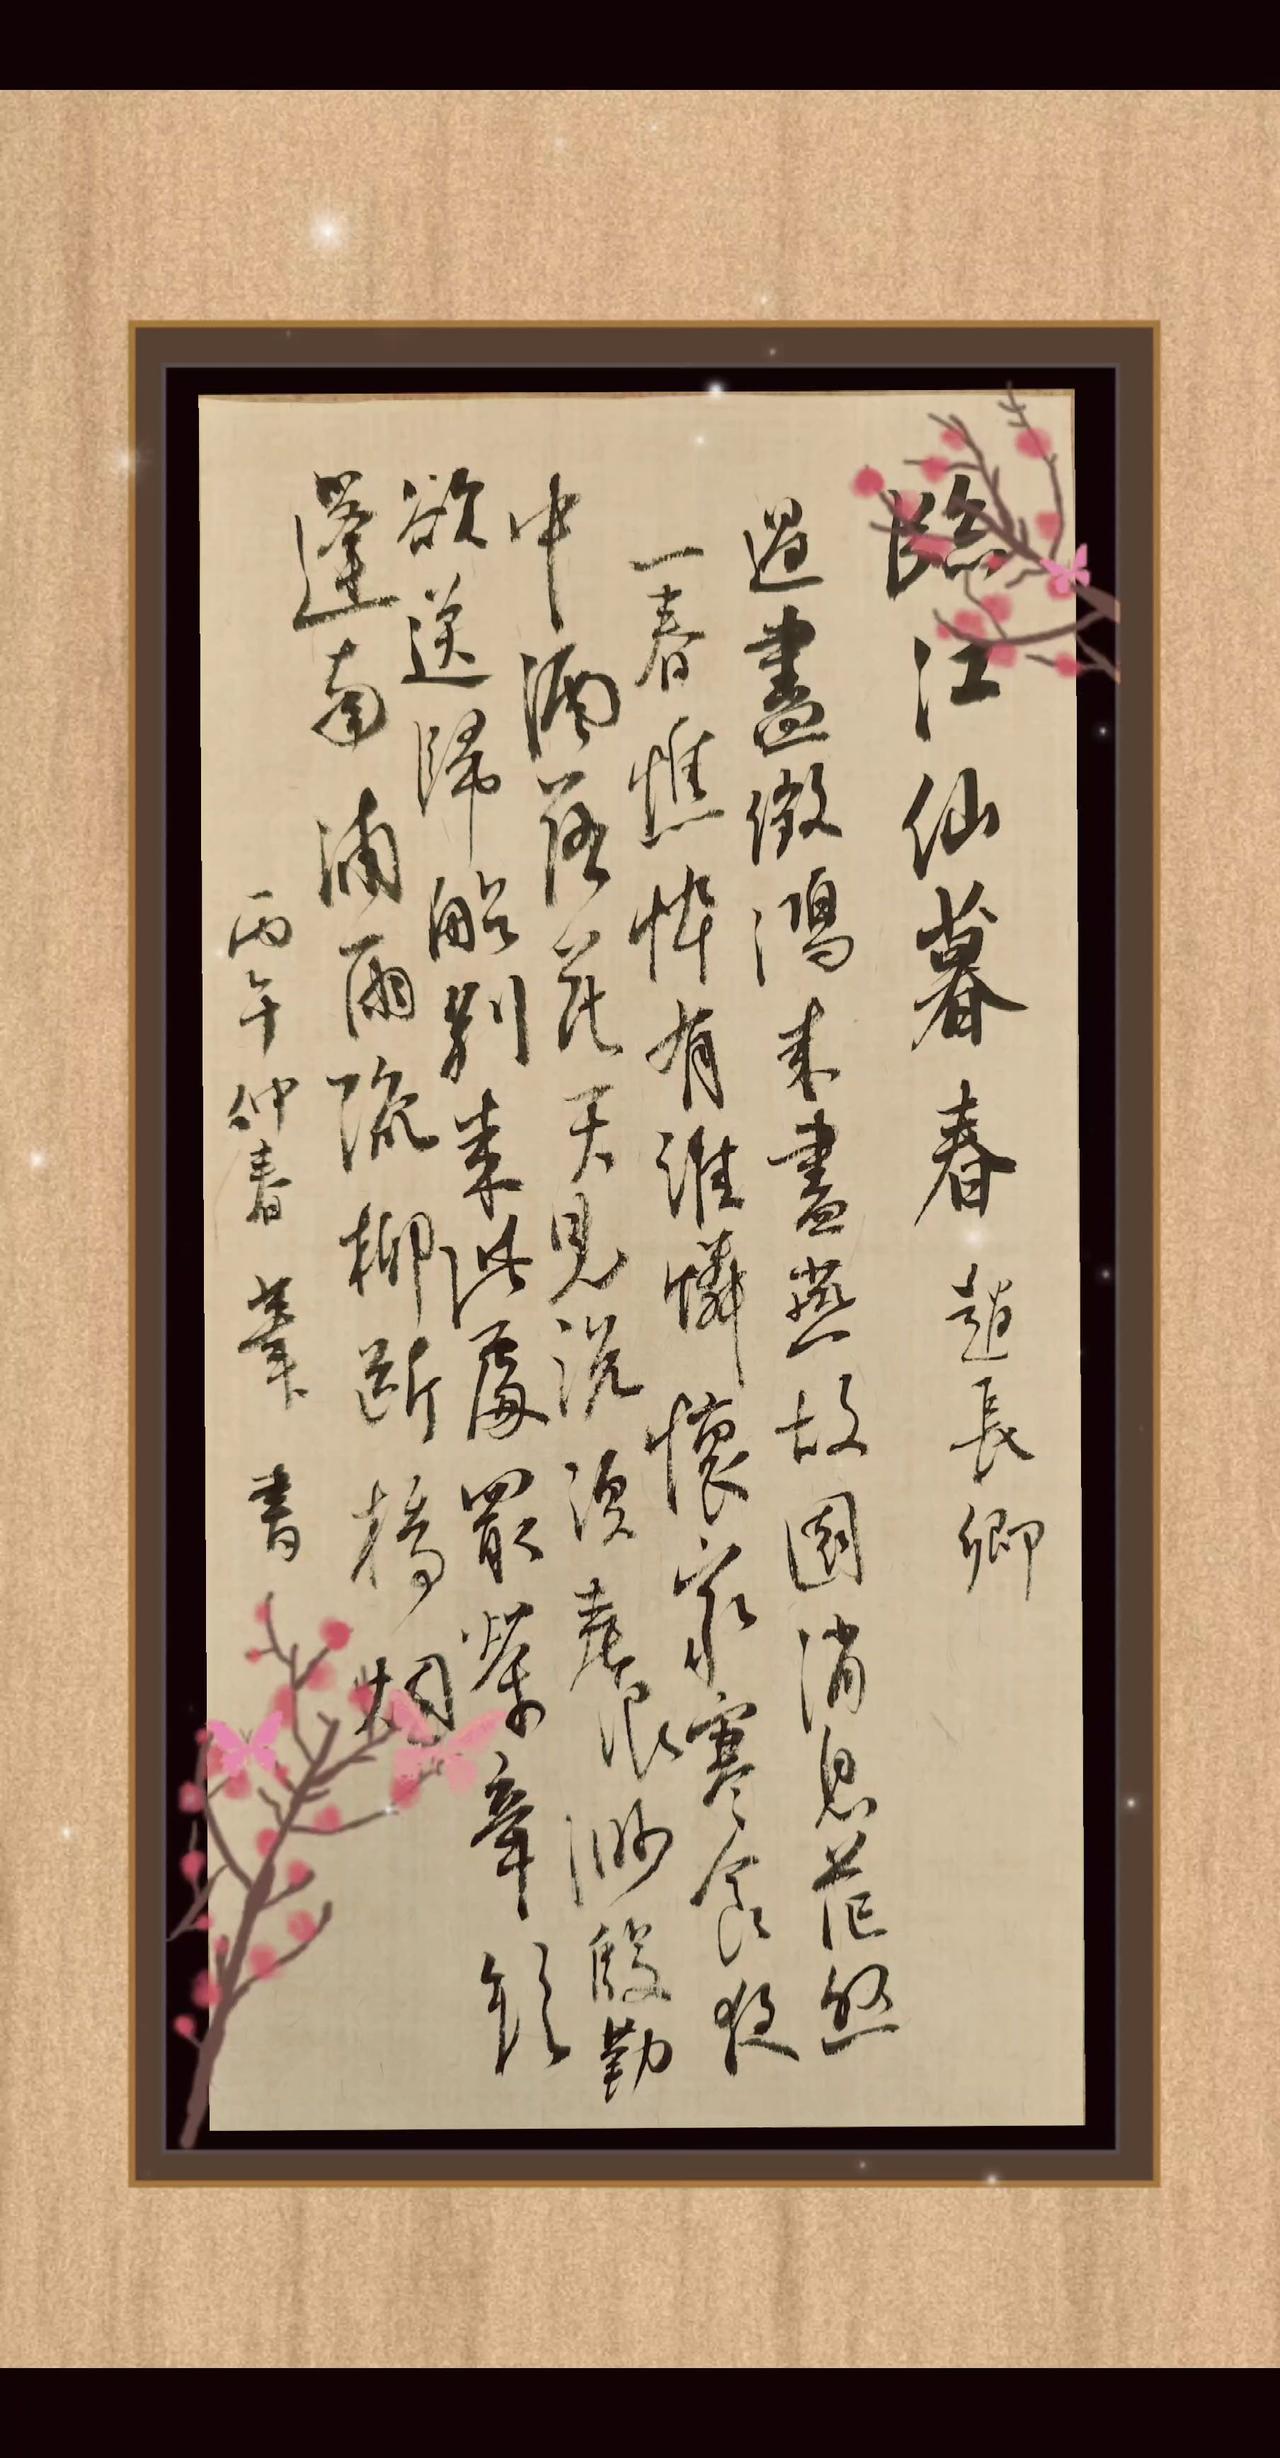 臨江仙暮春 趙長卿
過盡徵鴻来盡燕故園消息茫然
一春憔悴有誰憐懷家寒食夜
中酒落花天見説春浪渺殷勤
欲送歸船別来此處最縈牽短
蓬南浦雨疏柳斷橋烟
丙午仲春 書